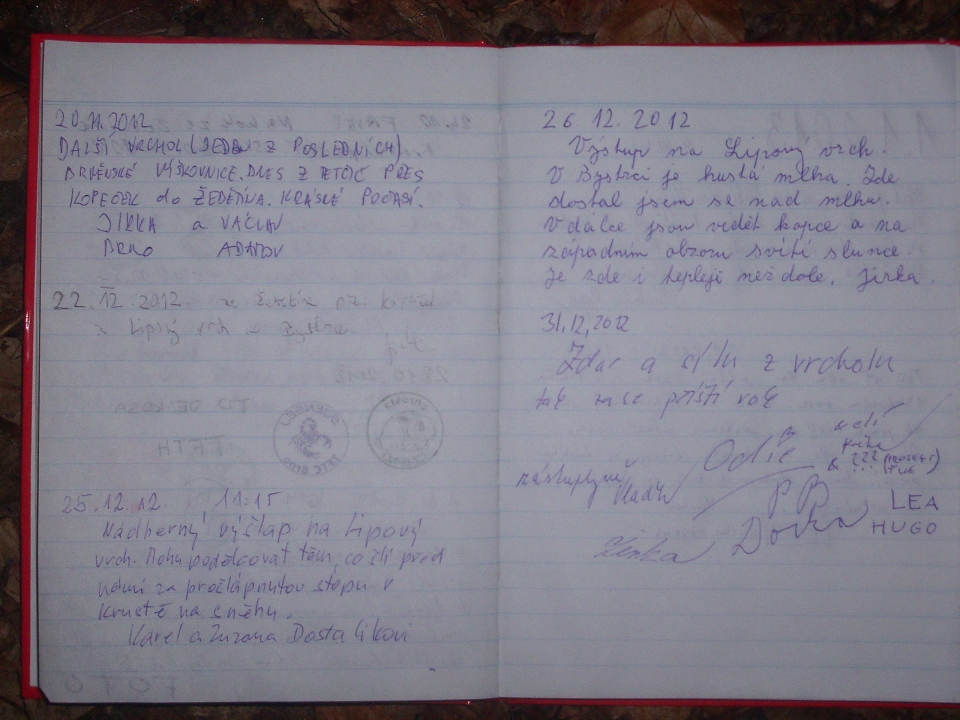 20.11.2012
DALŠÍ VRCHOL (JEDEN Z POSLEDNÍCH)
BRNĚNSKÉ VÝŠKOVNICE. DNES Z TETČIC PŘES
KOPEČEK do ŽEBĚTÍNA. KRÁSNÉ POČASÍ.
JIRKA a VÁCLAV
BRNO ADAMOV
22. 12. 2012
Lipový vrch
25.12.12. 11:15
Nádherný výšlap na Lipový
vrch. Mohu poděkovat těm, co šli před
námi za prošlápnutou stopu v
krustě na sněhu.
Karel a Zuzana Dostalíkovi
26.12.2012
Výstup na Lipový vrch.
V Bystrci je hustá mlha. Zde
dostal jsem se nad mlhu.
V dálce jsou vidět kopce a na
západním obzoru svítí slunce.
Je zde i tepleji než dole. Jirka.
31.12.2012
Zdar a sílu z vrcholu
tak zase příští rok
Odie
& ???
Vladin
PB
LEA
Lenka
Dorka
HUGO